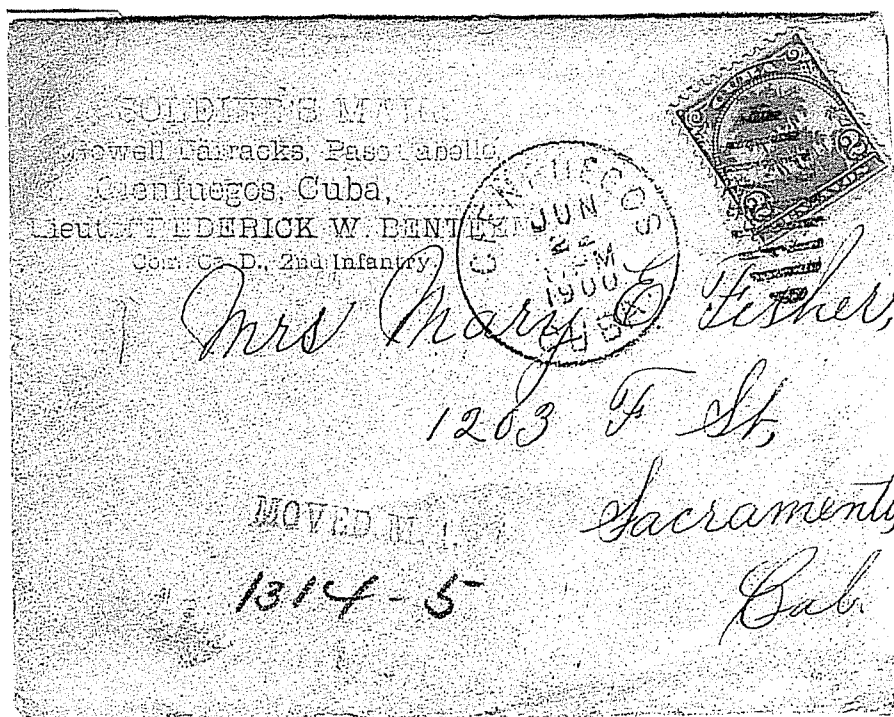 SOLDIER'S MAIL
Howell Barracks, Paso Caballo
Cienfuegos, Cuba,
Lieut. FREDERICK W. BENTEEN
Com. Co. D., 2nd Infantry
CIENFUEGOS
JUN
M
1900
CUBA
CUBA
2 2
Mrs Mary E Fisher,
1203 F St,
Sacramento,
Cal.
MOVED
1314-5